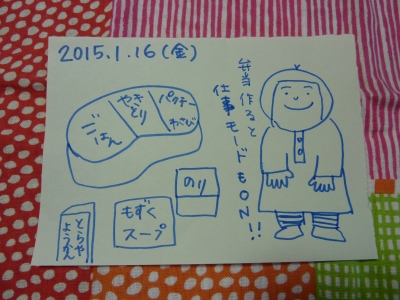 2015.1.16(金)
弁当作ると
仕事モードもON!!
ごはん
やき
とり
パクチー
わさび
のり
もずく
スープ
とらや
ようかん